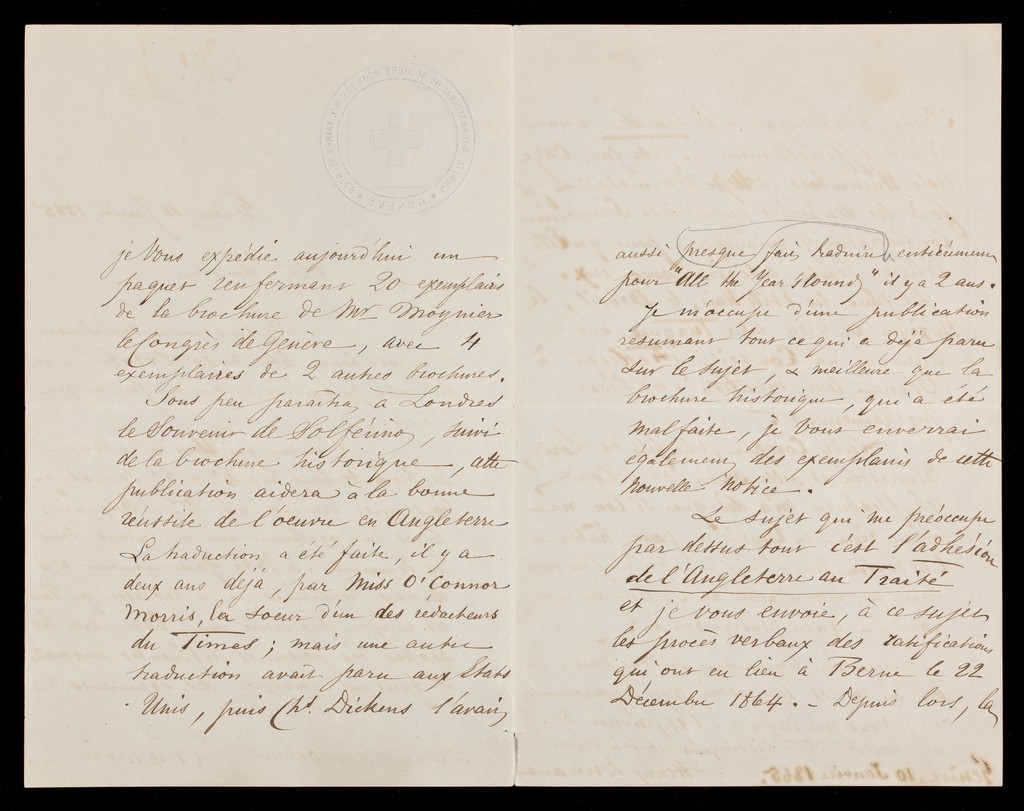 je Vous expédie aujourd'hui un
paquet renfermant 20 exemplaires
de la brochure de Mr Moynier
le Congrès de Genève, avec 4
exemplaires de 2 autres brochures.
Sous peu paraîtra, à Londres
le Souvenir de Solférino, suivi
de la brochure historique, cette
publication aidera à la bonne
réussite de l'oeuvre en Angleterre
La traduction a été faite, il y a
deux ans déjà, par Miss O'Connor
Morris, la soeur d'un des rédacteurs
du Times; mais une autre
traduction avait paru aux Etats
Unis, puis Chs. Dickens l'avait
aussi presque fait traduire entièrement
pour "All the Year Round" il y a 2 ans.
Je m'occupe d'une publication
résumant tout ce qui a déjà paru
sur le sujet, & meilleure que la
brochure historique, qui a été
mal faite, je Vous enverrai
également des exemplaires de cette
nouvelle notice.
Le sujet qui me préoccupe
par dessus tout c'est l'adhésion
de l'Angleterre au Traité
et je vous envoie, à ce sujet
les procès verbaux des ratifications
qui ont eu lieu à Berne le 22
Décembre 1864. - Depuis lors, la
Genève, 10 Janvier 1865.